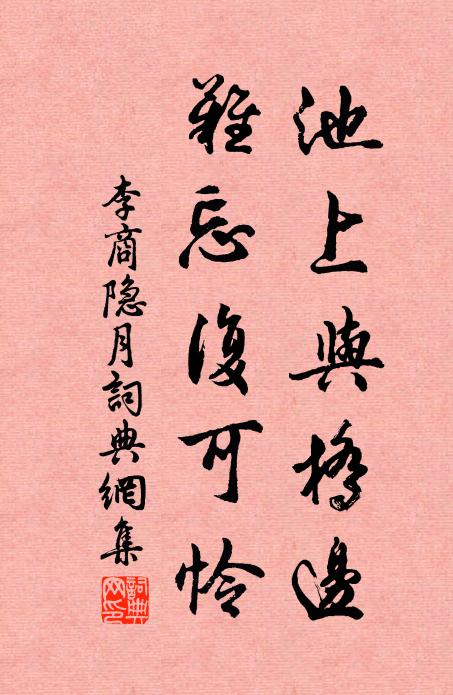 池上與橋邊
難忘復可怜
李商隐月詞典網集
詞典
网印